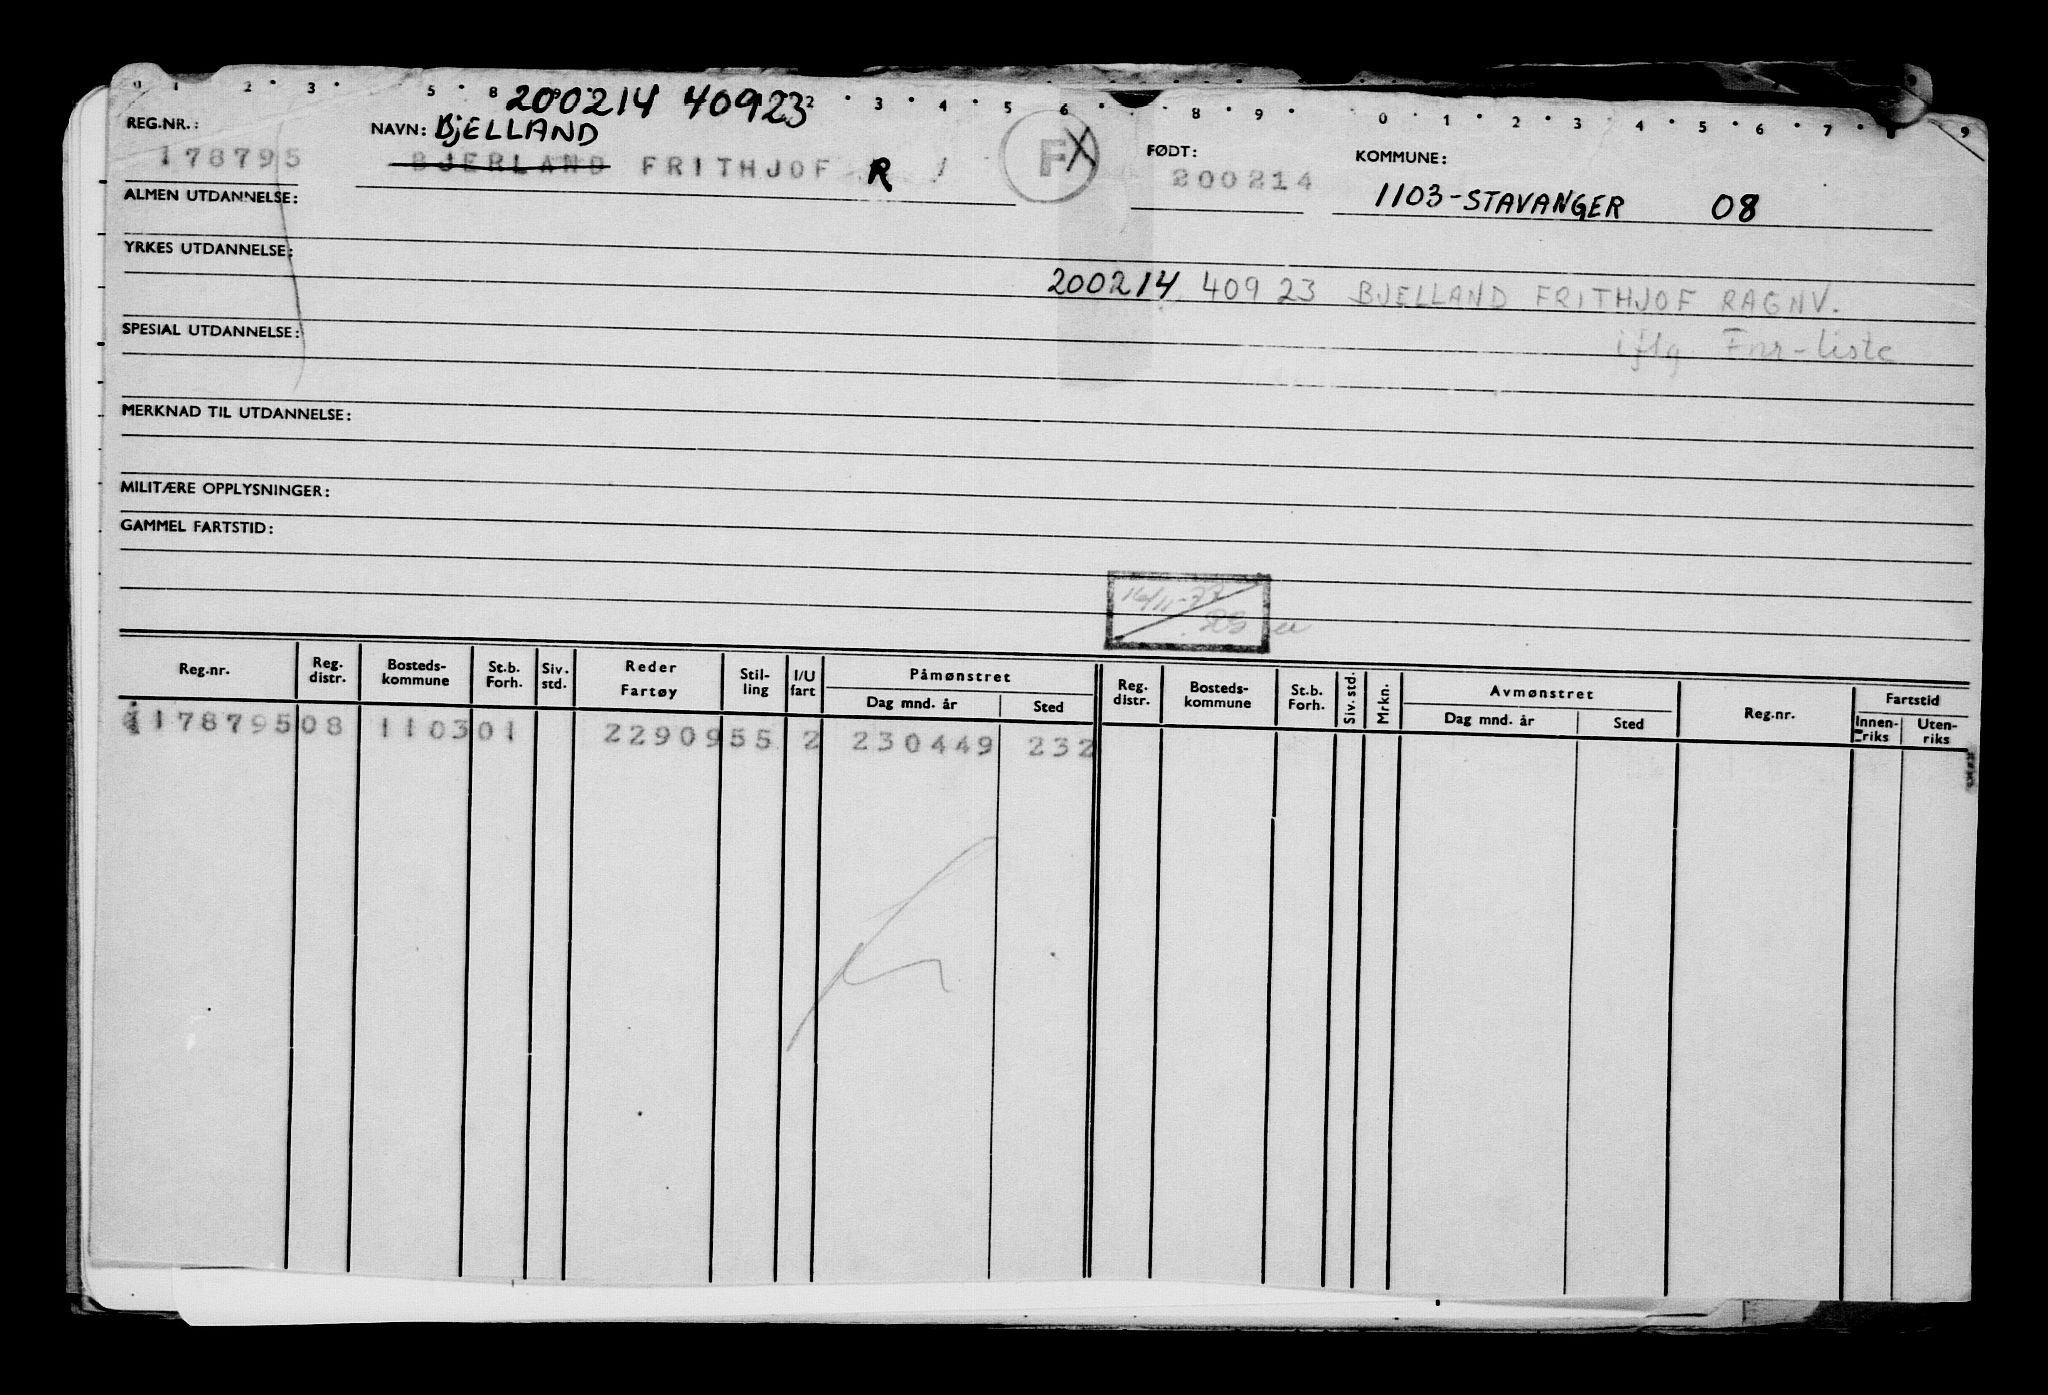 0 1 2 • 3 • 5 • 8 200214 40923 2 • 3 • 4 • 5 6 • • 8 • 9 • 0 • 1 • 2 • 3 • 4 • 5 • 6 • 7 • 8 9
REG.NR.: NAVN: BJELLAND FØDT: KOMMUNE:
178795 BJERLAND FRITHJOF R F X 200214 1103-STAVANGER 08
ALMEN UTDANNELSE:
YRKES UTDANNELSE:
200214 40923 BJELLAND FRITHJOF RAGNV.
iflg Fnr-liste
SPESIAL UTDANNELSE:
MERKNAD TIL UTDANNELSE:
MILITÆRE OPPLYSNINGER:
GAMMEL FARTSTID:
16/11-77
Reg.nr. Reg. distr. Bosteds-kommune St.b. Forh. Siv. std. Reder Fartøy Stil-ling I/U fart Påmønstret Dag mnd. år Sted Reg. distr. Bosteds-kommune St.b. Forh. Siv. std. Mrkn. Avmønstret Dag mnd. år Sted Reg.nr. Fartstid Innen-riks Uten-riks
178795 08 1103 01 22909 55 2 230449 232